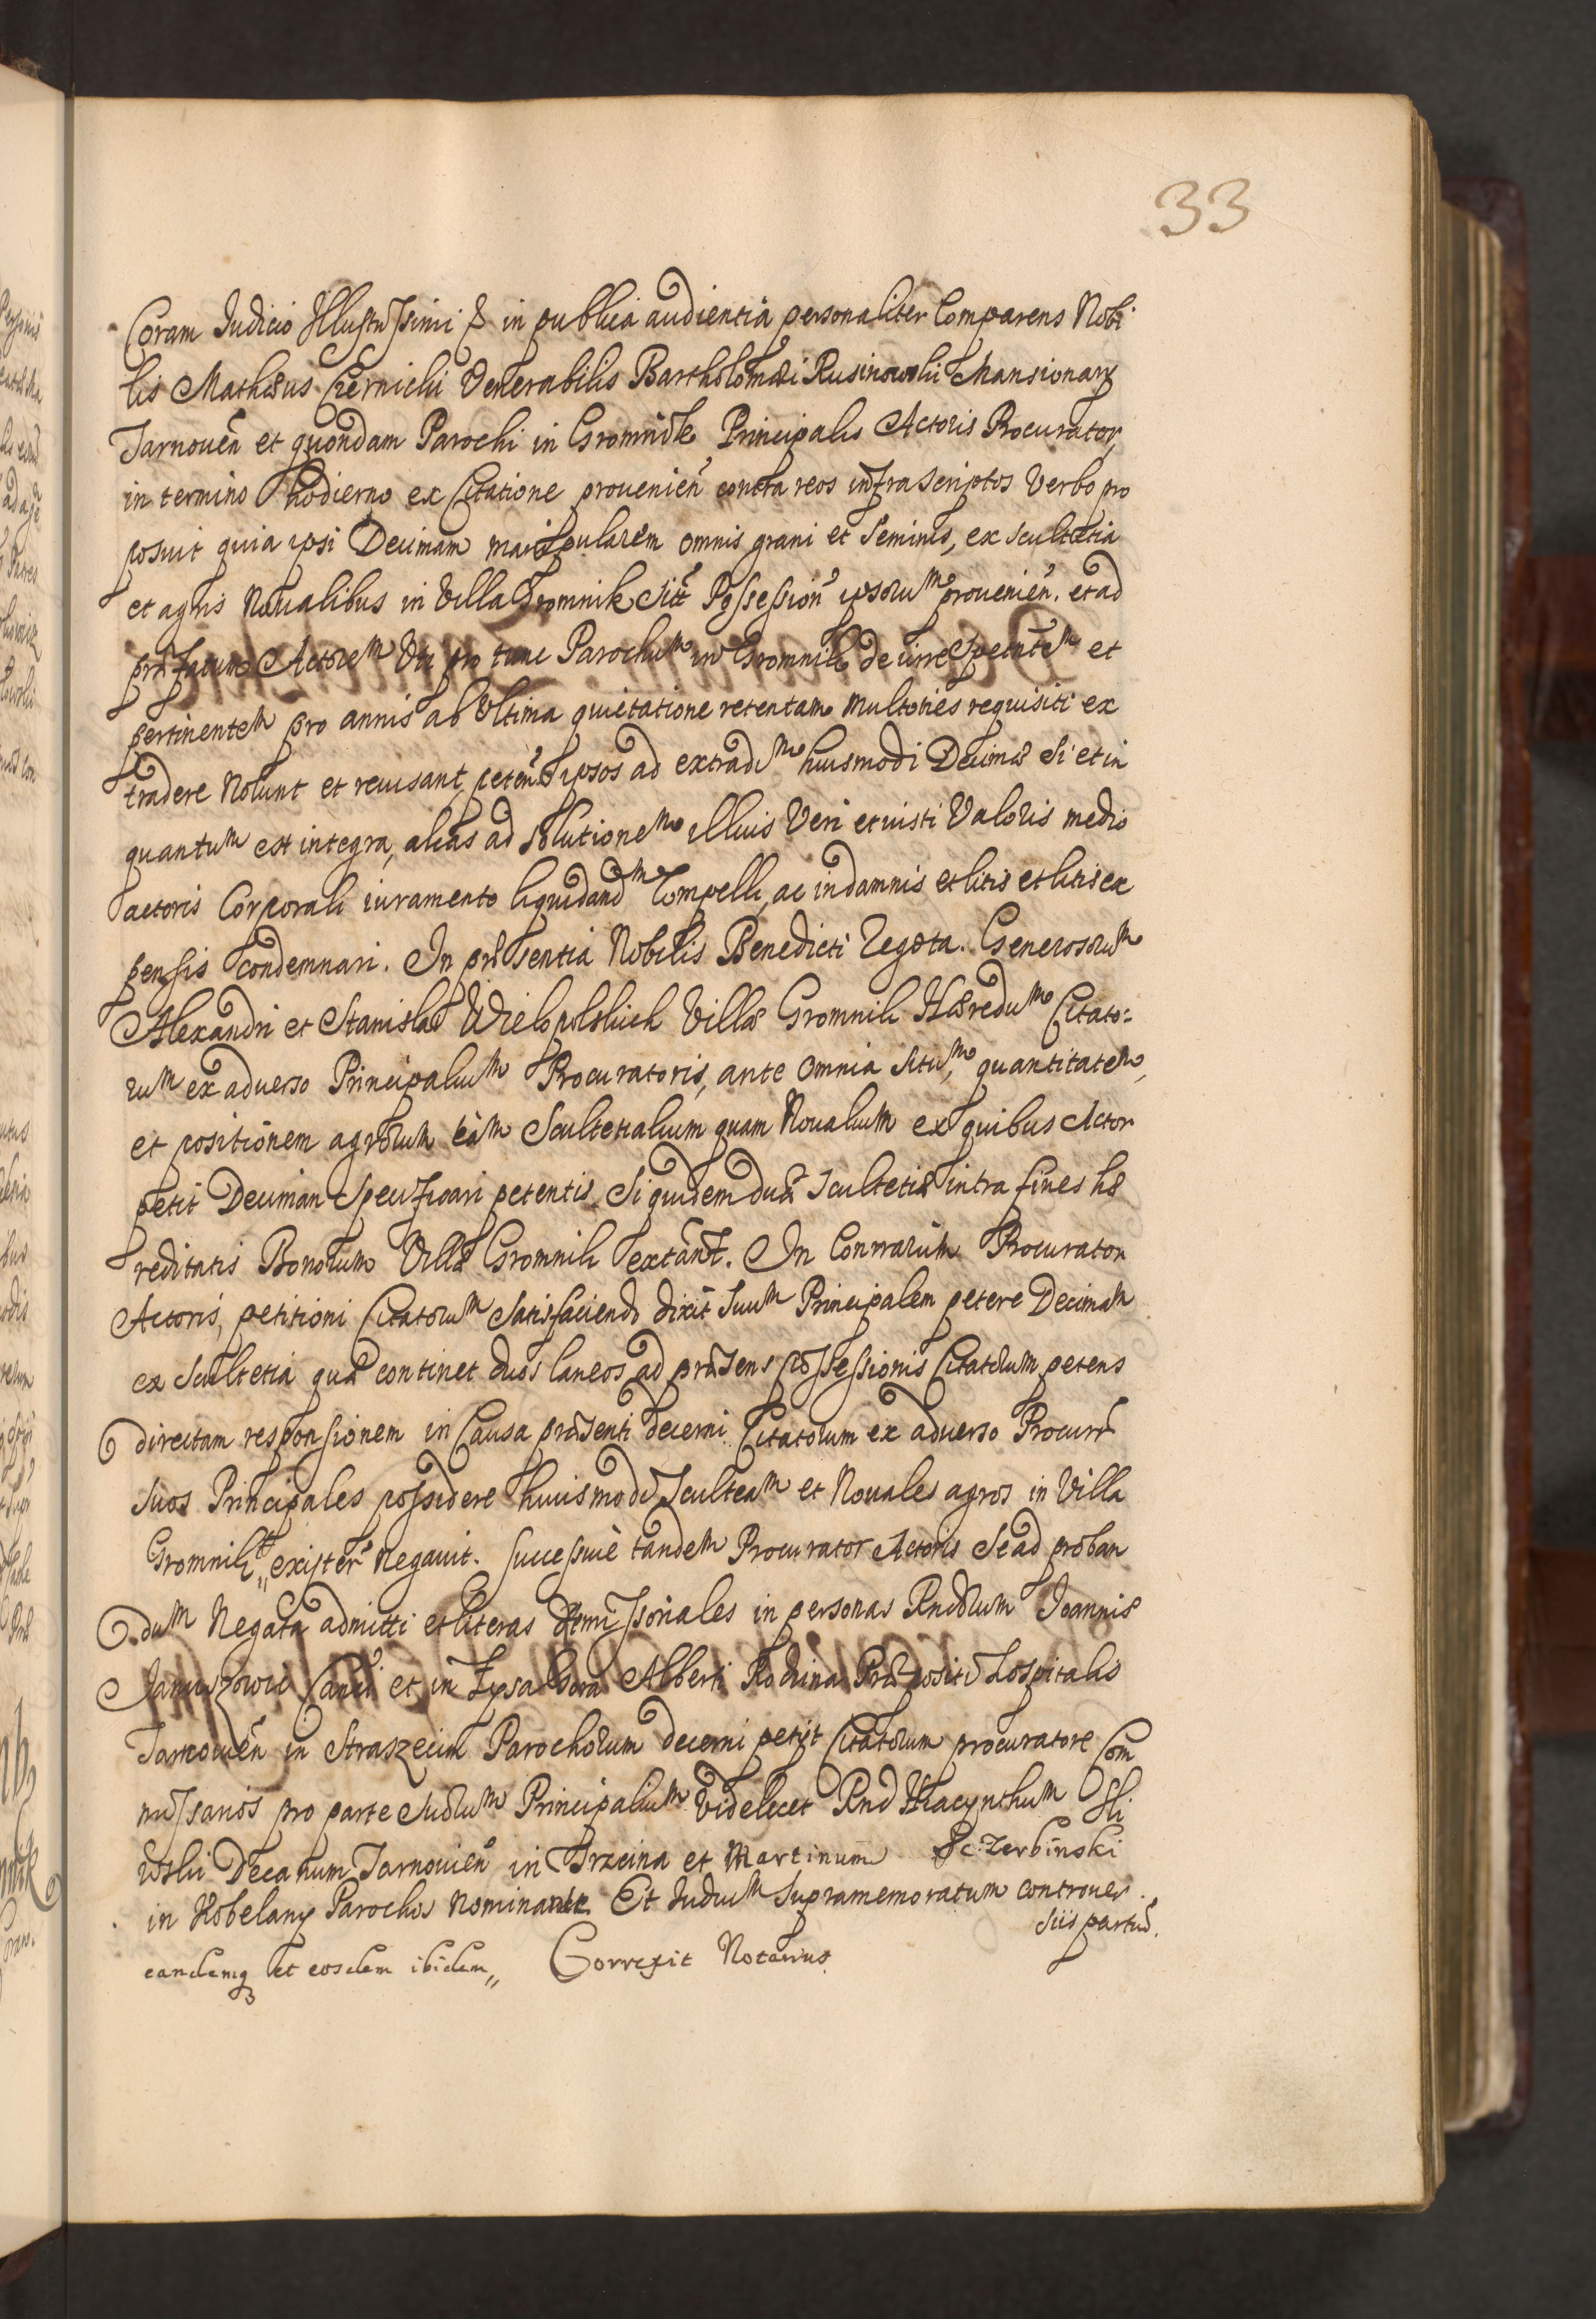 33
Coram Judicio Illustrissimi & in publica audientia personaliter Comparens Nobi
lis Mathæus Czernicki Venerabilis Bartholomæi Rusinowski Mansionary
Tarnovien̄ et quondam Parochi in Gromnik Principalis Actoris Procurator,
in termino hodierno ex Citatione provenien̄ contra reos infrascriptos Verbo pro
posuit quia ipsi Decimam manipularem omnis grani et Seminis, ex scultetia
et agris Novalibus in Villa Gromnik sitt̄ Possession̄ ipsorum provenien̄. et ad
præfatum Actorem Uti pro tunc Parochum in Gromnik de iure Spectantem et
pertinentem pro annis ab Ultima quietatione retentam multoties requisiti ex
tradere Nolunt et recusant, peten̄ ipsos ad extradm̄ huiusmodi Decimæ si et in
quantum est integra, alias ad solutionem illius Veri et iusti Valoris medio
actoris Corporali iuramento liquidandm̄ Compelli, ac in damnis et litis et litis ex
pensis condemnari. In præsentia Nobilis Benedicti Zegota. Generosorum
Alexandri et Stanislai Wielopolskich Villæ Gromnik Hæredum Citato:
rum ex adverso Principalium Procuratoris, ante omnia situm, quantitatem,
et positionem agrorum tàm Scultetialium quam Novalium ex quibus Actor
petit Decimam Specificari petentis. Siquidem duæ scultetiæ intra fines hæ
reditatis Bonorum Villæ Gromnik extant. In Contrarium Procurator
Actoris, petitioni Citatorum satisfaciendo dixit suum Principalem petere Decimam
ex Scultetia quæ continet duos laneos ad præsens possessionis Citatorum petens
directam responsionem in Causa præsenti decerni. Citatorum ex adverso Procurr̄
suos Principales possidere huiusmodi Scultetiam et Novales agros in Villa
Gromnik „ exister̄ negavit. Successivè tandem Procurator Actoris se ad proban
dum Negata admitti et literas Remissoriales in personas Rndorum Joannis
Januszowic et in Alberti Rodzina Præpositi Hospitalis
Tarnovien̄ in Straszecin Parochorum decerni petijt Citatorum procuratore Com
missarios pro parte suorum Principalium Videlicet Rnd Hiacynthum Śli
wski Decanum Tarnovien̄ in Trzcina et Martinum Sczerbinski
in Kobelany Parochos Nominante. Et Judium supramemoratum controver
siis partiū.
eandemq; et eosdem ibidem „ Correxit Notarius.